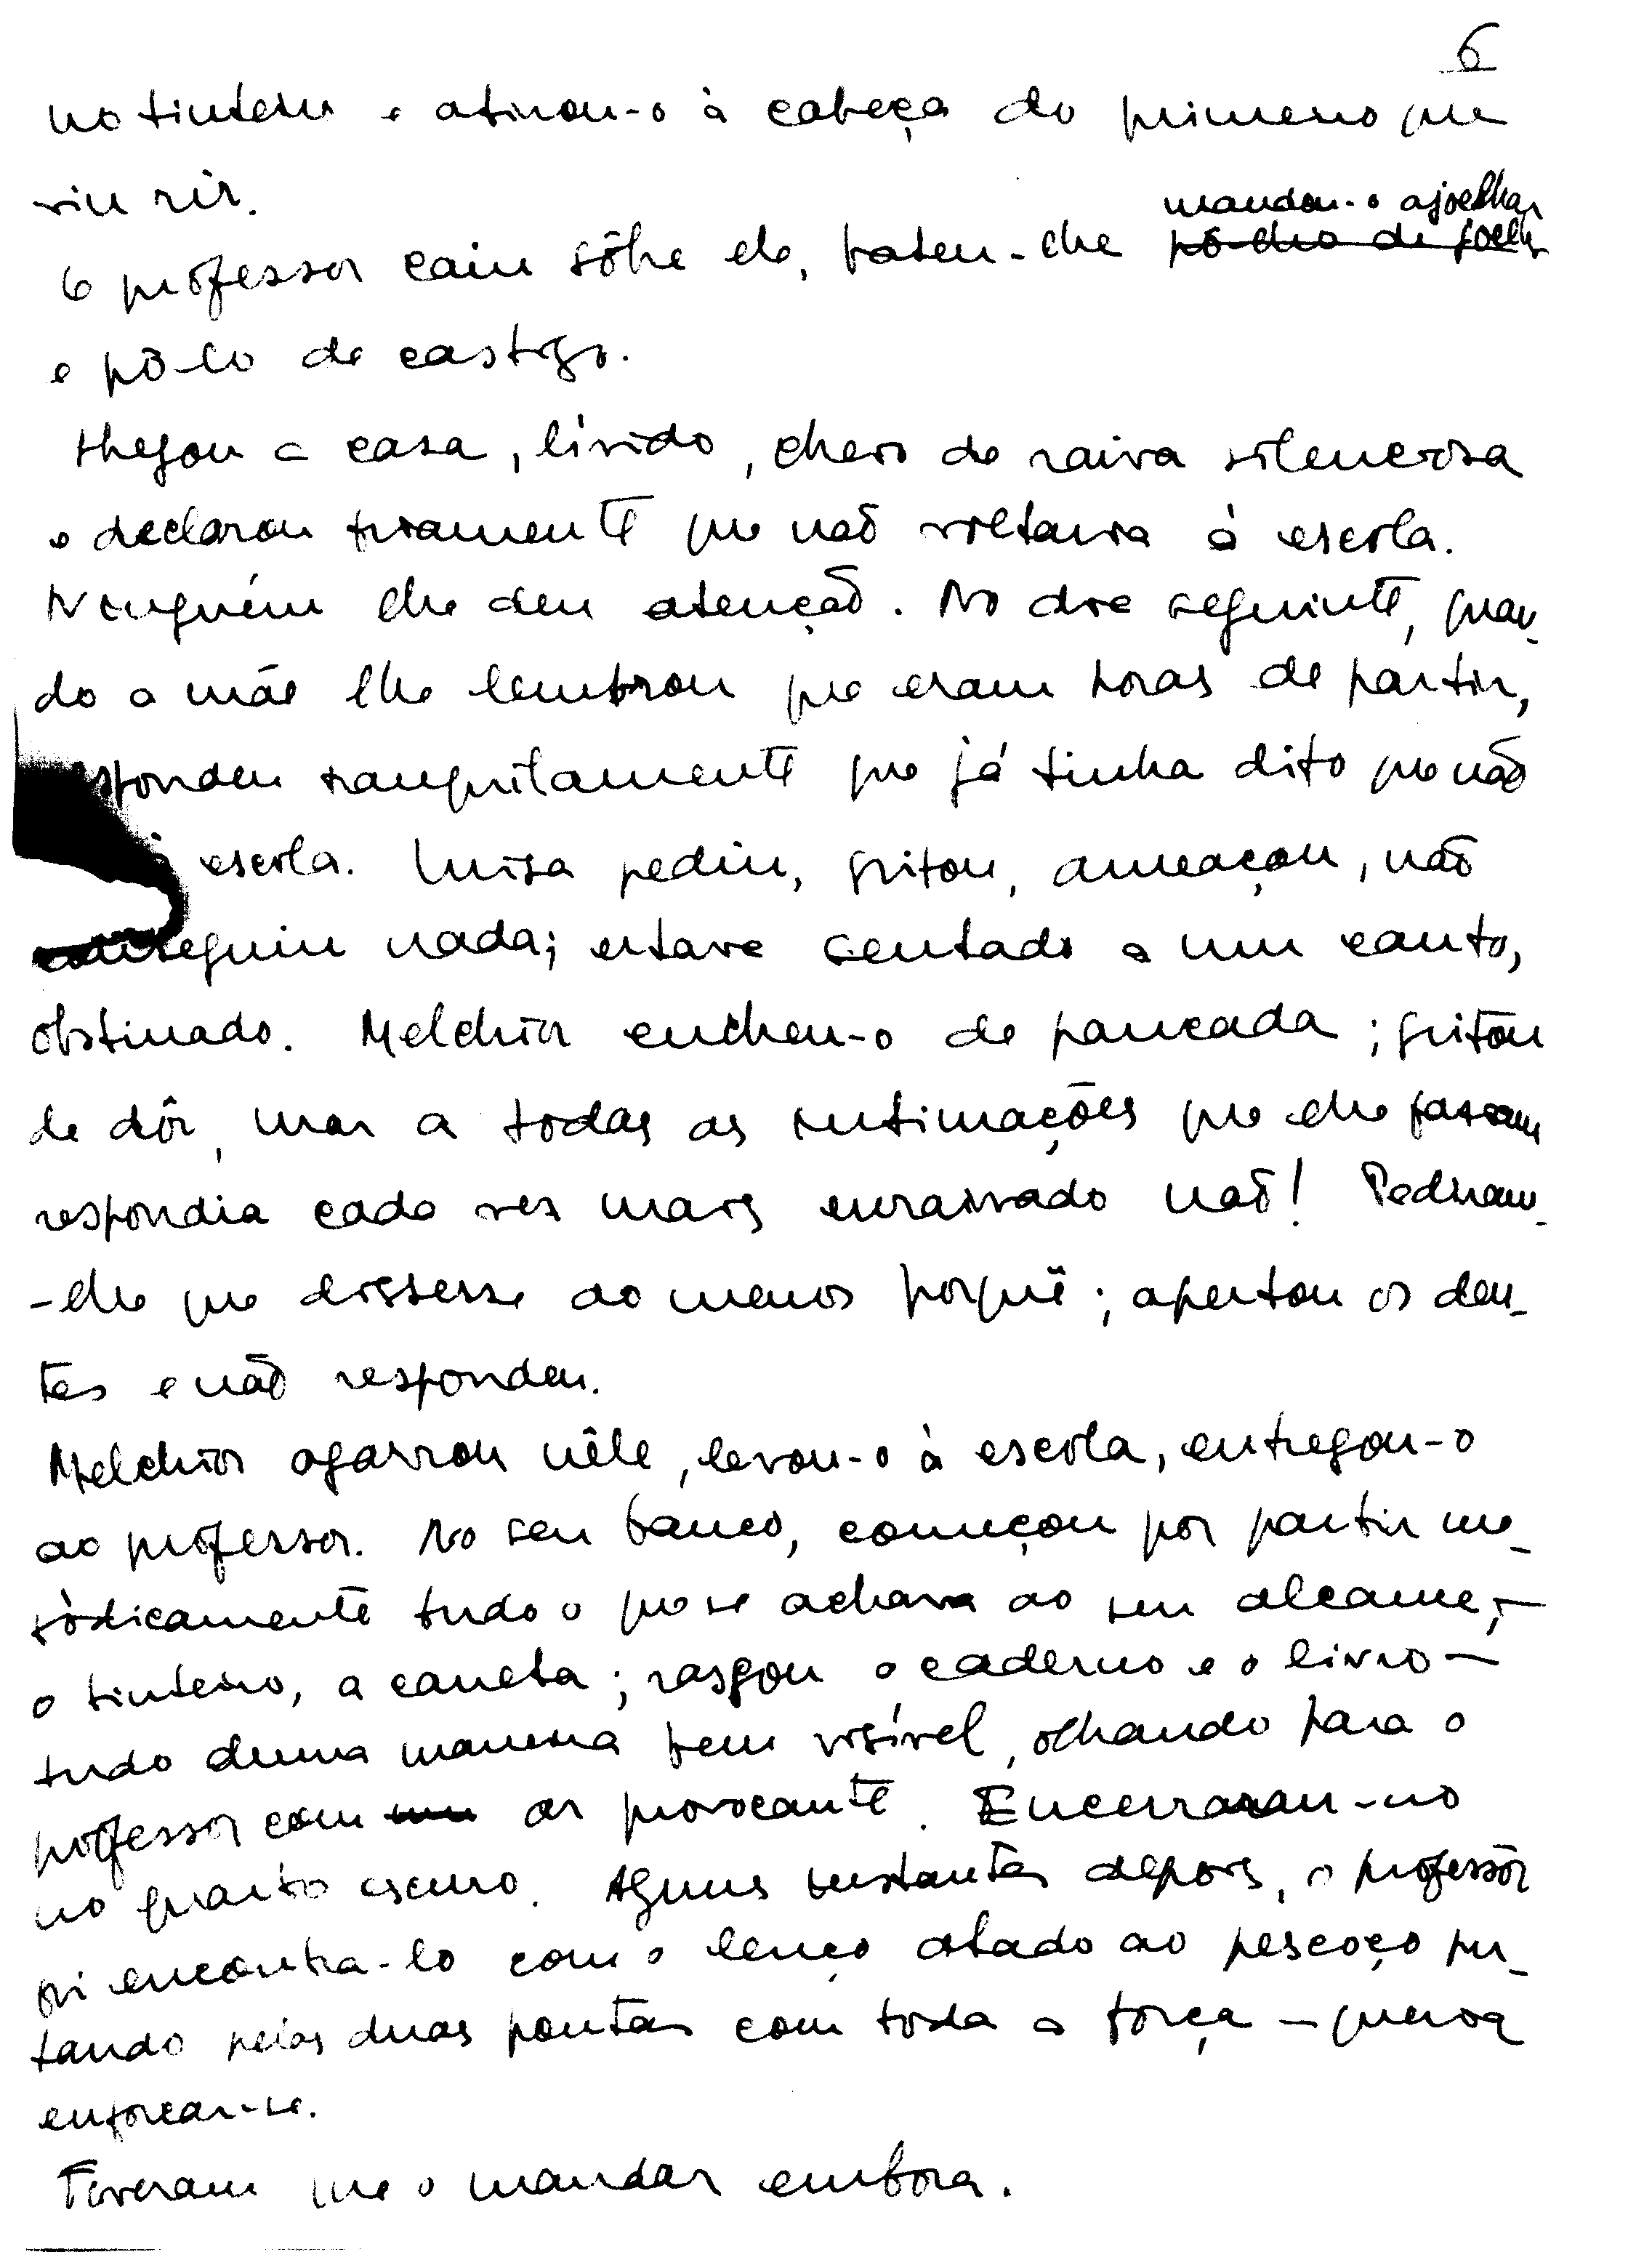 6
no tinteiro e atirou-o à cabeça do primeiro que
viu rir.
mandou-o ajoelhar
O professor caiu sôbre ele, bateu-lhe pô-lho de joelh
e pô-lo de castigo.
Chegou a casa, lívido, cheio de raiva silenciosa
e declarou friamente que não voltaria à escola.
Ninguém lhe deu atenção. No dia seguinte, quan-
do a mãe lhe lembrou que eram horas de partir,
spondeu tranquilamente que já tinha dito que não
à escola. Luisa pediu, gritou, ameaçou, não
conseguiu nada; estava sentado a um canto,
obstinado. Melchior encheu-o de pancada; gritou
de dôr, mas a todas as intimações que lhe faziam
respondia cada vez mais enraivado não! Pediram-
-lhe que dissesse ao menos porquê; apertou os den-
tes e não respondeu.
Melchior agarrou nêle, levou-o à escola, entregou-o
ao professor. No seu banco, começou por partir me-
tòdicamente tudo o que se achava ao seu alcance, –
o tinteiro, a caneta; rasgou o caderno e o livro –
tudo duma maneira bem visível, olhando para o
professor com um ar provocante. Encerraram-no
no quarto escuro. Alguns instantes depois, o professôr
foi encontra-lo com o lenço atado ao pescoço pu-
tando pelas duas pontas com toda a força – queria
enforcar-se.
Tiveram que o mandar embora.